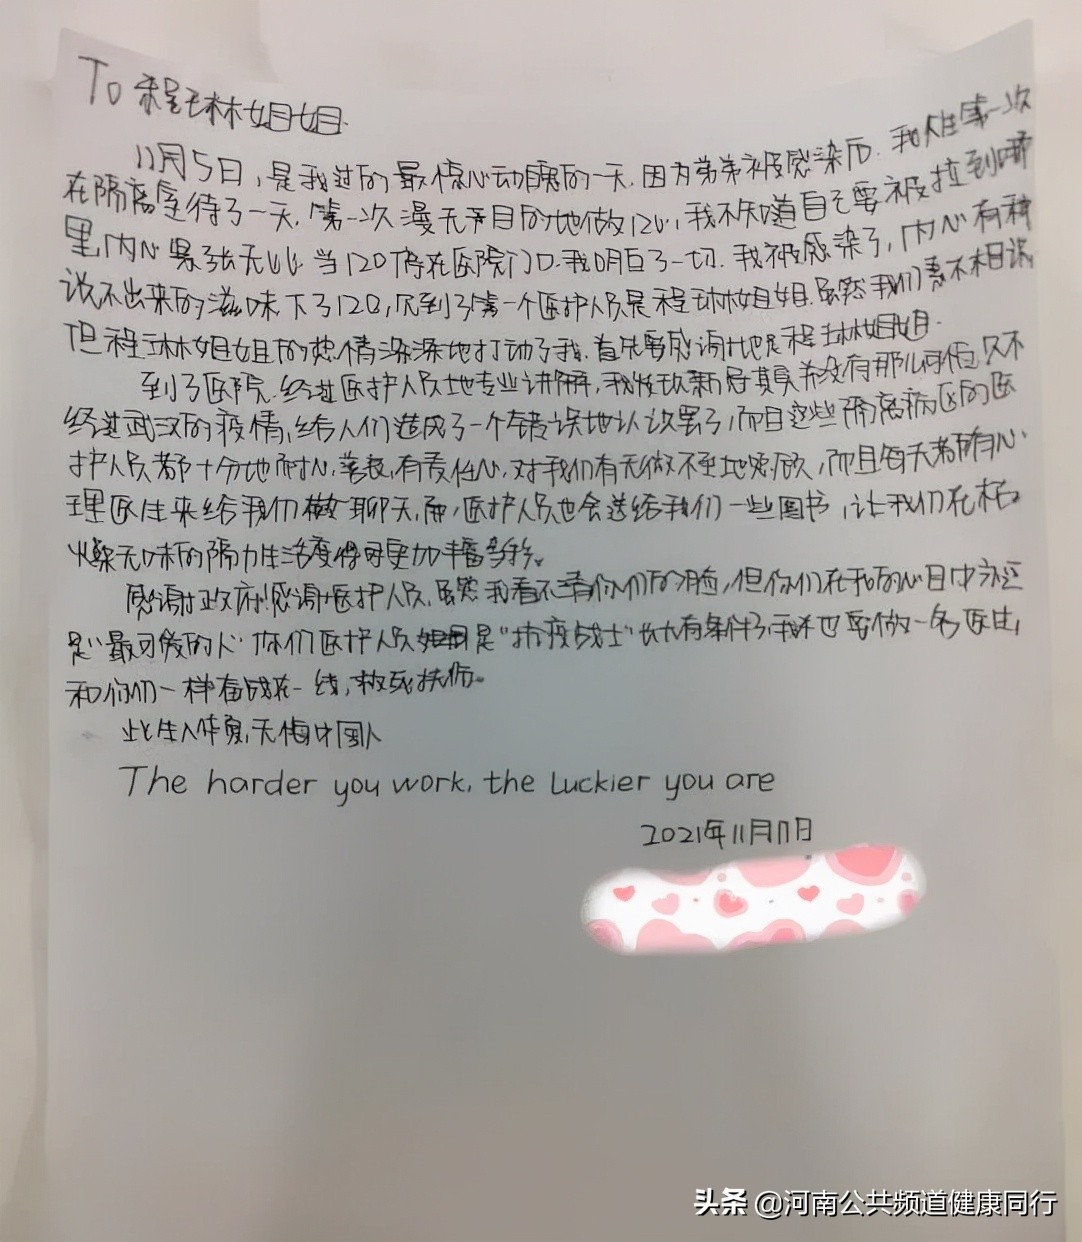 To 程琳林姐姐
11月5日,是我过的最惊心动魄的一天,因为弟弟被感染后.我人生第一次
在隔离室待了一天,第一次漫无目的地做120,我不知道自己要被拉到哪
里,内心紧张无比.当120停在医院门口.我明白了一切.我被感染了,内心有种
说不出来的滋味.下了120,见到了第一个医护人员是程琳林姐姐.虽然我们素不相识
但程琳林姐姐的热情深深地打动了我.首先要感谢地是程琳林姐姐.
到了医院.经过医护人员地专业讲解,我发现新冠其实并没有那么可怕,只不
经过武汉的疫情,给人们造成了一个错误地认识罢了,而且这些隔离病区的医
护人员都十分地耐心,善良,有责任心,对我们有无微不至地照顾,而且每天都有心
理医生来给我们聊天,医护人员也会送给我们一些图书,让我们在枯
燥无味的隔离生活变得更加丰富多彩。
感谢政府!感谢医护人员,虽然我看不清你们的脸,但你们在我的心目中永远
是“最可爱的人”你们医护人员是“抗疫战士”长大有条件了,我也要做一名医生,
和你们一样奋战在一线,救死扶伤。
此生入华夏,无悔中国人
The harder you work, the luckier you are
2021年11月17日
头条 @河南公共频道健康同行